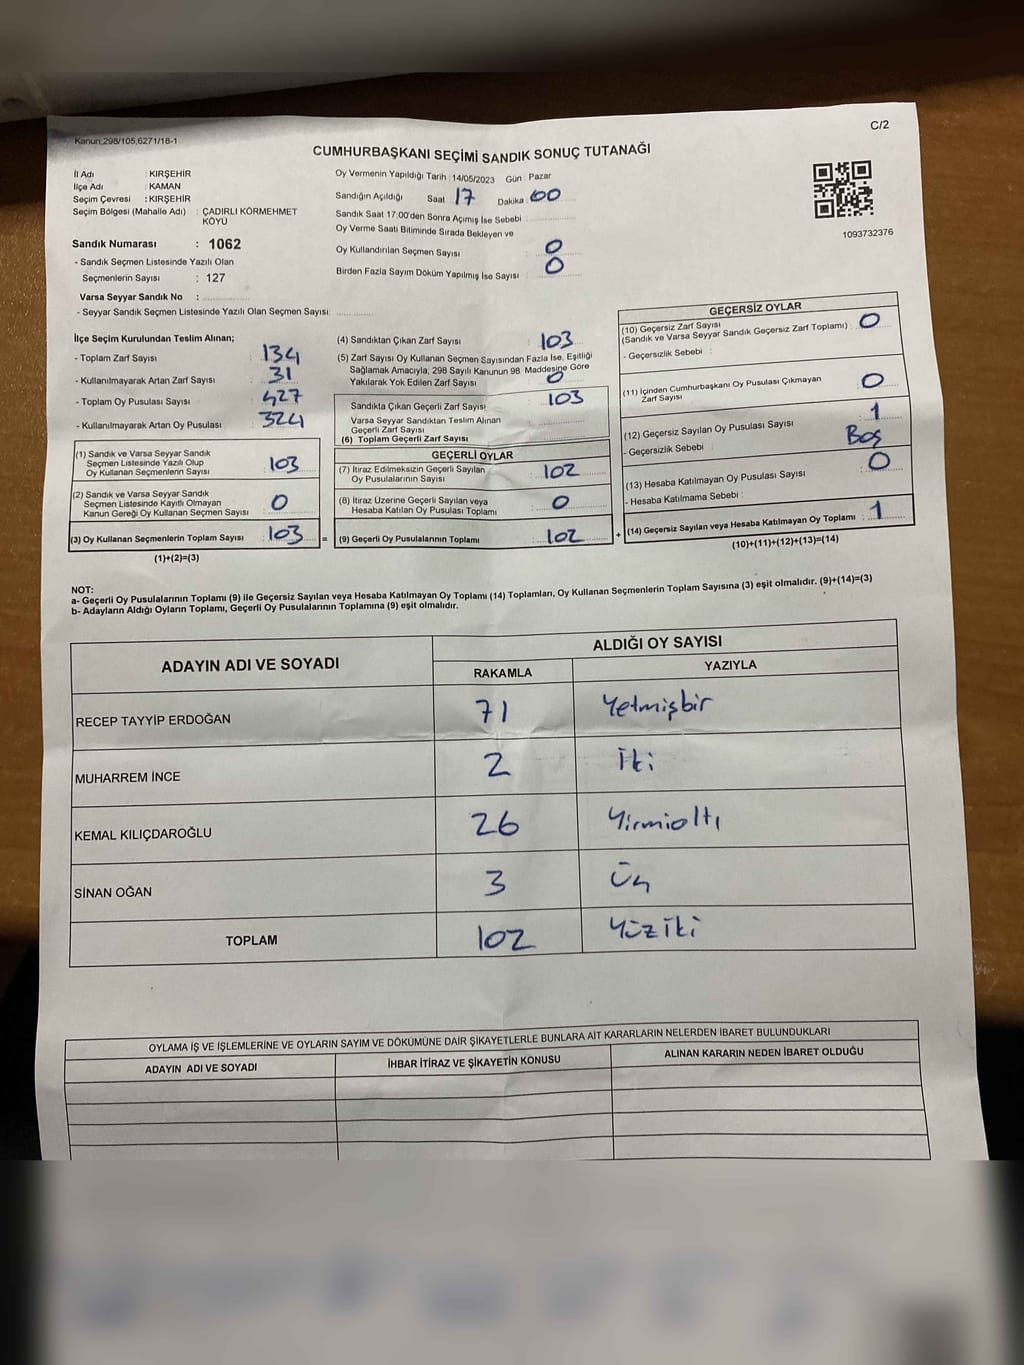 Kanun:298/105,6271/18-1
C/2
CUMHURBAŞKANI SEÇİMİ SANDIK SONUÇ TUTANAĞI
İl Adı : KIRŞEHİR
İlçe Adı : KAMAN
Seçim Çevresi : KIRŞEHİR
Seçim Bölgesi (Mahalle Adı) : ÇADIRLI KÖRMEHMET
KÖYÜ
Sandık Numarası : 1062
- Sandık Seçmen Listesinde Yazılı Olan
Seçmenlerin Sayısı : 127
Varsa Seyyar Sandık No :
- Seyyar Sandık Seçmen Listesinde Yazılı Olan Seçmen Sayısı:
Oy Vermenin Yapıldığı Tarih : 14/05/2023 Gün : Pazar
Sandığın Açıldığı Saat 17 Dakika 00
Sandık Saat 17:00'den Sonra Açımış İse Sebebi :
Oy Verme Saati Bitiminde Sırada Bekleyen ve
Oy Kullandırılan Seçmen Sayısı : 0
Birden Fazla Sayım Döküm Yapılmış İse Sayısı : 0
1093732376
İlçe Seçim Kurulundan Teslim Alınan;
- Toplam Zarf Sayısı : 134
- Kullanılmayarak Artan Zarf Sayısı : 31
- Toplam Oy Pusulası Sayısı : 427
- Kullanılmayarak Artan Oy Pusulası : 324
(1) Sandık ve Varsa Seyyar Sandık
Seçmen Listesinde Yazılı Olup
Oy Kullanan Seçmenlerin Sayısı : 103
(2) Sandık ve Varsa Seyyar Sandık
Seçmen Listesinde Kayıtlı Olmayan
Kanun Gereği Oy Kullanan Seçmen Sayısı : 0
(3) Oy Kullanan Seçmenlerin Toplam Sayısı : 103 =
(1)+(2)=(3)
(4) Sandıktan Çıkan Zarf Sayısı : 103
(5) Zarf Sayısı Oy Kullanan Seçmen Sayısından Fazla İse, Eşitliği
Sağlamak Amacıyla, 298 Sayılı Kanunun 98. Maddesine Göre
Yakılarak Yok Edilen Zarf Sayısı : 0
Sandıkta Çıkan Geçerli Zarf Sayısı : 103
Varsa Seyyar Sandıktan Teslim Alınan
Geçerli Zarf Sayısı :
(6) Toplam Geçerli Zarf Sayısı
GEÇERLİ OYLAR
(7) İtiraz Edilmeksizin Geçerli Sayılan
Oy Pusulalarının Sayısı : 102
(8) İtiraz Üzerine Geçerli Sayılan veya
Hesaba Katılan Oy Pusulası Toplamı : 0
(9) Geçerli Oy Pusulalarının Toplamı : 102 +
GEÇERSİZ OYLAR
(10) Geçersiz Zarf Sayısı
(Sandık ve Varsa Seyyar Sandık Geçersiz Zarf Toplamı) : 0
- Geçersizlik Sebebi :
(11) İçinden Cumhurbaşkanı Oy Pusulası Çıkmayan
Zarf Sayısı : 0
(12) Geçersiz Sayılan Oy Pusulası Sayısı : 1
- Geçersizlik Sebebi : Boş
(13) Hesaba Katılmayan Oy Pusulası Sayısı : 0
- Hesaba Katılmama Sebebi :
(14) Geçersiz Sayılan veya Hesaba Katılmayan Oy Toplamı : 1
(10)+(11)+(12)+(13)=(14)
NOT:
a- Geçerli Oy Pusulalarının Toplamı (9) ile Geçersiz Sayılan veya Hesaba Katılmayan Oy Toplamı (14) Toplamları, Oy Kullanan Seçmenlerin Toplam Sayısına (3) eşit olmalıdır. (9)+(14)=(3)
b- Adayların Aldığı Oyların Toplamı, Geçerli Oy Pusulalarının Toplamına (9) eşit olmalıdır.
ADAYIN ADI VE SOYADI ALDIĞI OY SAYISI
RAKAMLA YAZIYLA
RECEP TAYYİP ERDOĞAN 71 Yetmişbir
MUHARREM İNCE 2 İki
KEMAL KILIÇDAROĞLU 26 Yirmialtı
SİNAN OĞAN 3 Üç
TOPLAM 102 Yüz İki
OYLAMA İŞ VE İŞLEMLERİNE VE OYLARIN SAYIM VE DÖKÜMÜNE DAİR ŞİKAYETLERLE BUNLARA AİT KARARLARIN NELERDEN İBARET BULUNDUKLARI
ADAYIN ADI VE SOYADI İHBAR İTİRAZ VE ŞİKAYETİN KONUSU ALINAN KARARIN NEDEN İBARET OLDUĞU